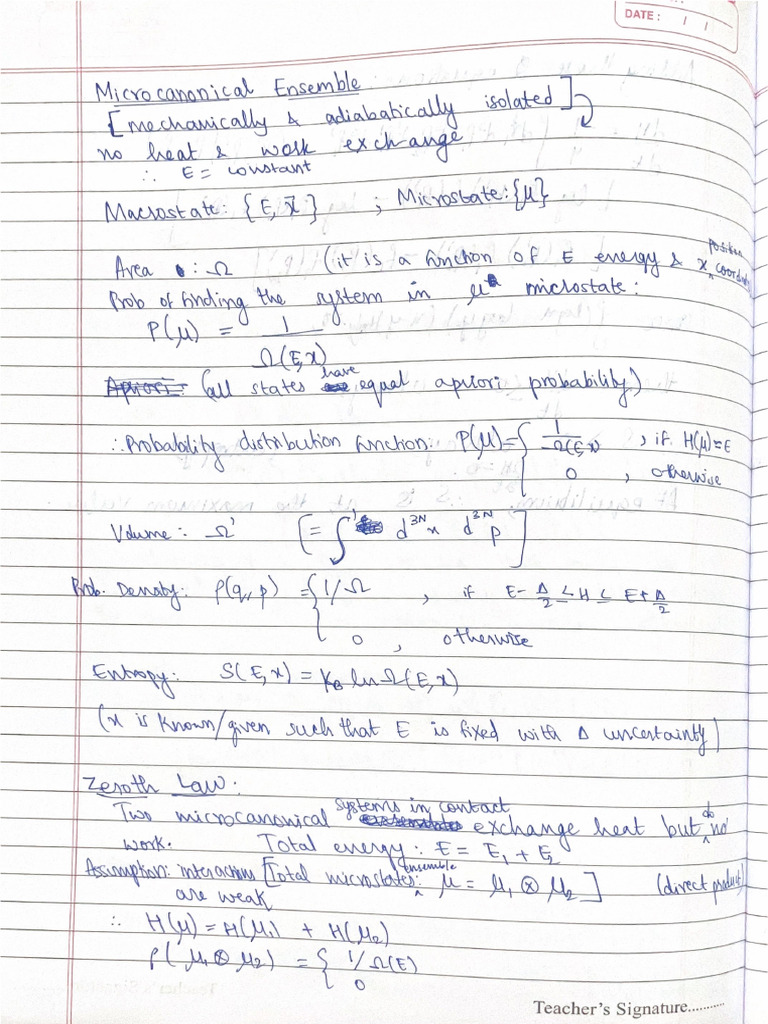 DATE: / /
Microcanonical Ensemble
[mechanically & adiabatically isolated]
no heat & work exchange
∴ E = constant
Macrostate: {E, x⃗} ; Microstate: {μ}
Area : Ω (it is a function of E energy & x position coordinate
Prob of finding the system in μ microstate:
P(μ) = 1/Ω(E,x)
Apriori: (all states have equal apriori probability)
∴ Probability distribution function: P(μ) = { 1/Ω(E,x) , if H(μ)=E
0 , otherwise
Volume: Ω' [≡ ∫' d³ᴺx d³ᴺp]
Prob. Density: ρ(q,p) = { 1/Ω , if E-Δ/2 ≤ H ≤ E+Δ/2
0 , otherwise
Entropy: S(E,x) = k_B ln Ω(E,x)
(x is known/given such that E is fixed with Δ uncertainty)
Zeroth Law:
Two microcanonical systems in contact exchange heat but do no
work. Total energy: E = E₁ + E₂
Assumption: interactions are weak [Total microstates ensemble: μ = μ₁ ⊗ μ₂] (direct product)
∴ H(μ) = H(μ₁) + H(μ₂)
ρ(μ₁ ⊗ μ₂) = { 1/Ω(E)
0
Teacher's Signature..........